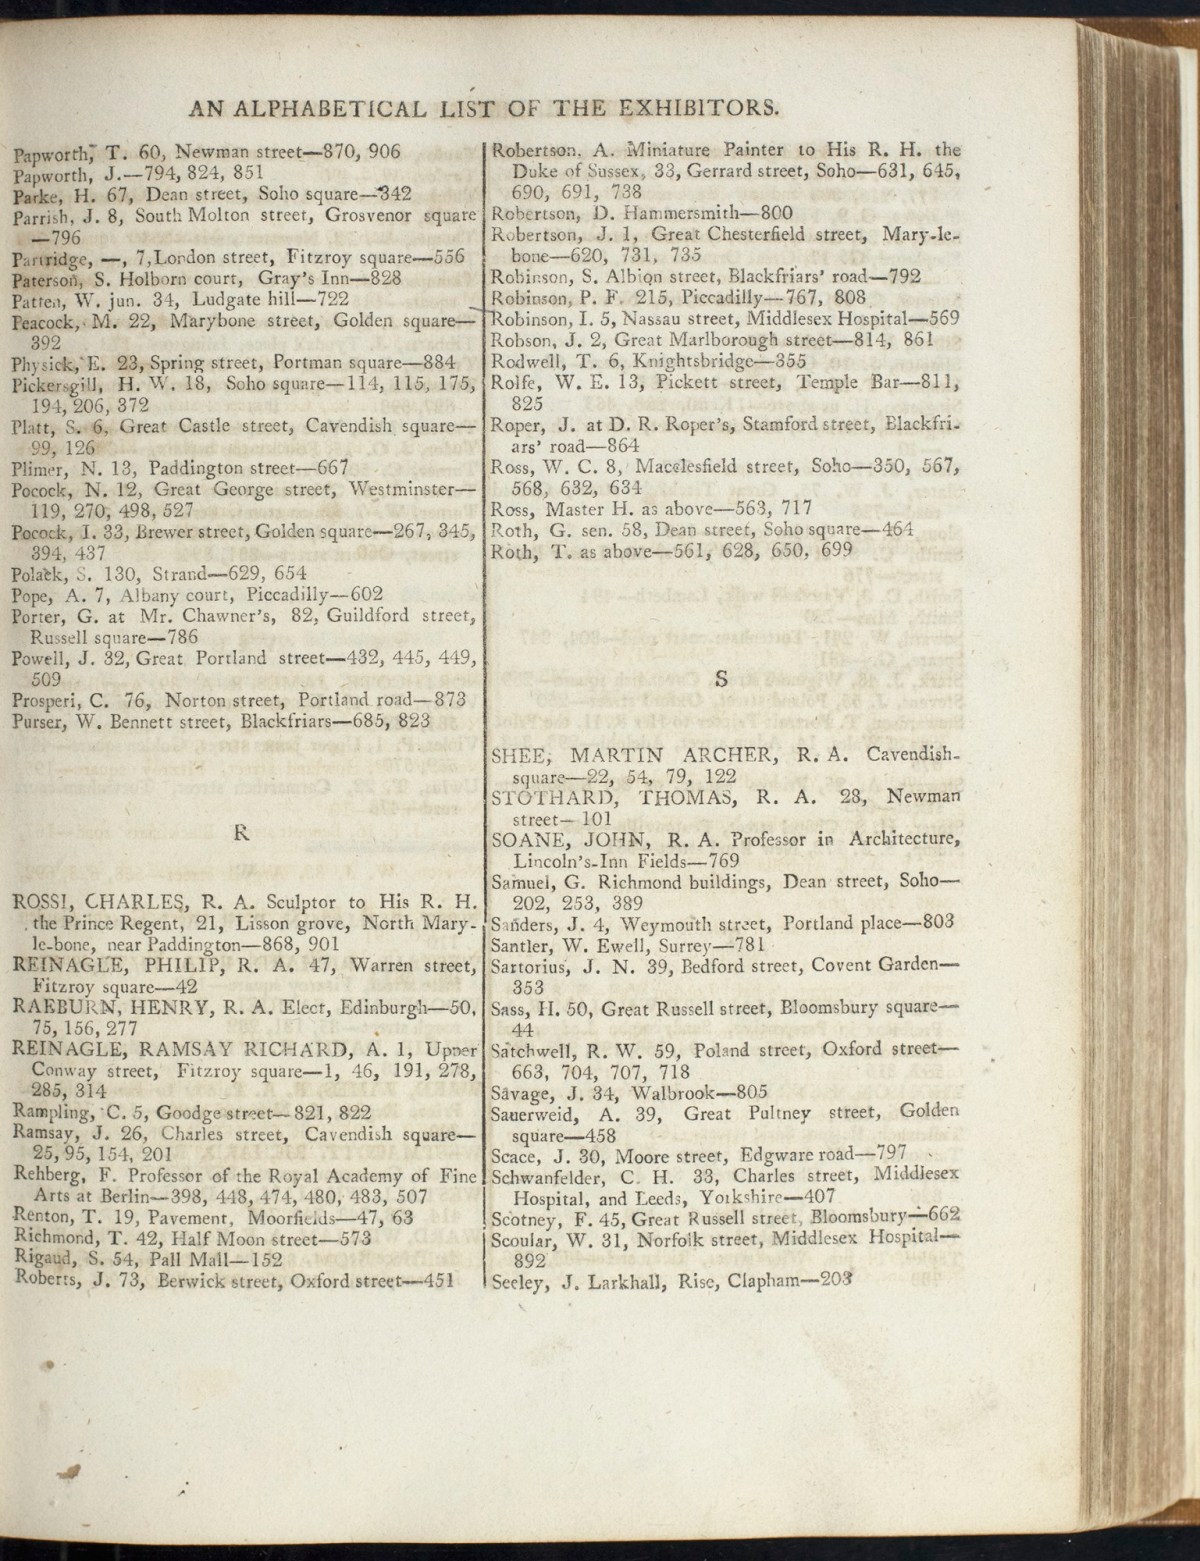 AN ALPHABETICAL LIST OF THE EXHIBITORS.
Papworth, T. 60, Newman street—870, 906
Papworth, J.—794, 824, 851
Parke, H. 67, Dean street, Soho square—342
Parrish, J. 8, South Molton street, Grosvenor square
—796
Partridge, —, 7, London street, Fitzroy square—556
Paterson, S. Holborn court, Gray's Inn—828
Patten, W. jun. 34, Ludgate hill—722
Peacock, M. 22, Marybone street, Golden square—
392
Physick, E. 23, Spring street, Portman square—884
Pickersgill, H. W. 18, Soho square—114, 115, 175,
194, 206, 372
Platt, S. 6, Great Castle street, Cavendish square—
99, 126
Plimer, N. 13, Paddington street—667
Pocock, N. 12, Great George street, Westminster—
119, 270, 498, 527
Pocock, I. 33, Brewer street, Golden square—267, 345,
394, 437
Polack, S. 130, Strand—629, 654
Pope, A. 7, Albany court, Piccadilly—602
Porter, G. at Mr. Chawner's, 82, Guildford street,
Russell square—786
Powell, J. 32, Great Portland street—432, 445, 449,
509
Prosperi, C. 76, Norton street, Portland road—873
Purser, W. Bennett street, Blackfriars—685, 823
R
ROSSI, CHARLES, R. A. Sculptor to His R. H.
the Prince Regent, 21, Lisson grove, North Mary-
le-bone, near Paddington—868, 901
REINAGLE, PHILIP, R. A. 47, Warren street,
Fitzroy square—42
RAEBURN, HENRY, R. A. Elect, Edinburgh—50,
75, 156, 277
REINAGLE, RAMSAY RICHARD, A. 1, Upper
Conway street, Fitzroy square—1, 46, 191, 278,
285, 314
Rampling, C. 5, Goodge street—821, 822
Ramsay, J. 26, Charles street, Cavendish square—
25, 95, 154, 201
Rehberg, F. Professor of the Royal Academy of Fine
Arts at Berlin—398, 448, 474, 480, 483, 507
Renton, T. 19, Pavement, Moorfields—47, 63
Richmond, T. 42, Half Moon street—573
Rigaud, S. 54, Pall Mall—152
Roberts, J. 73, Berwick street, Oxford street—451
Robertson, A. Miniature Painter to His R. H. the
Duke of Sussex, 33, Gerrard street, Soho—631, 645,
690, 691, 738
Robertson, D. Hammersmith—800
Robertson, J. 1, Great Chesterfield street, Mary-le-
bone—620, 731, 735
Robinson, S. Albion street, Blackfriars' road—792
Robinson, P. F. 215, Piccadilly—767, 808
Robinson, I. 5, Nassau street, Middlesex Hospital—569
Robson, J. 2, Great Marlborough street—814, 861
Rodwell, T. 6, Knightsbridge—355
Rolfe, W. E. 13, Pickett street, Temple Bar—811,
825
Roper, J. at D. R. Roper's, Stamford street, Blackfri-
ars' road—864
Ross, W. C. 8, Macclesfield street, Soho—350, 567,
568, 632, 634
Ross, Master H. as above—563, 717
Roth, G. sen. 58, Dean street, Soho square—464
Roth, T. as above—561, 628, 650, 699
S
SHEE, MARTIN ARCHER, R. A. Cavendish-
square—22, 54, 79, 122
STOTHARD, THOMAS, R. A. 28, Newman
street—101
SOANE, JOHN, R. A. Professor in Architecture,
Lincoln's-Inn Fields—769
Samuel, G. Richmond buildings, Dean street, Soho—
202, 253, 389
Sanders, J. 4, Weymouth street, Portland place—803
Santler, W. Ewell, Surrey—781
Sartorius, J. N. 39, Bedford street, Covent Garden—
353
Sass, H. 50, Great Russell street, Bloomsbury square—
44
Satchwell, R. W. 59, Poland street, Oxford street—
663, 704, 707, 718
Savage, J. 34, Walbrook—805
Sauerweid, A. 39, Great Pultney street, Golden
square—458
Scace, J. 30, Moore street, Edgware road—797
Schwanfelder, C. H. 33, Charles street, Middlesex
Hospital, and Leeds, Yorkshire—407
Scotney, F. 45, Great Russell street, Bloomsbury—662
Scoular, W. 31, Norfolk street, Middlesex Hospital—
892
Seeley, J. Larkhall, Rise, Clapham—203